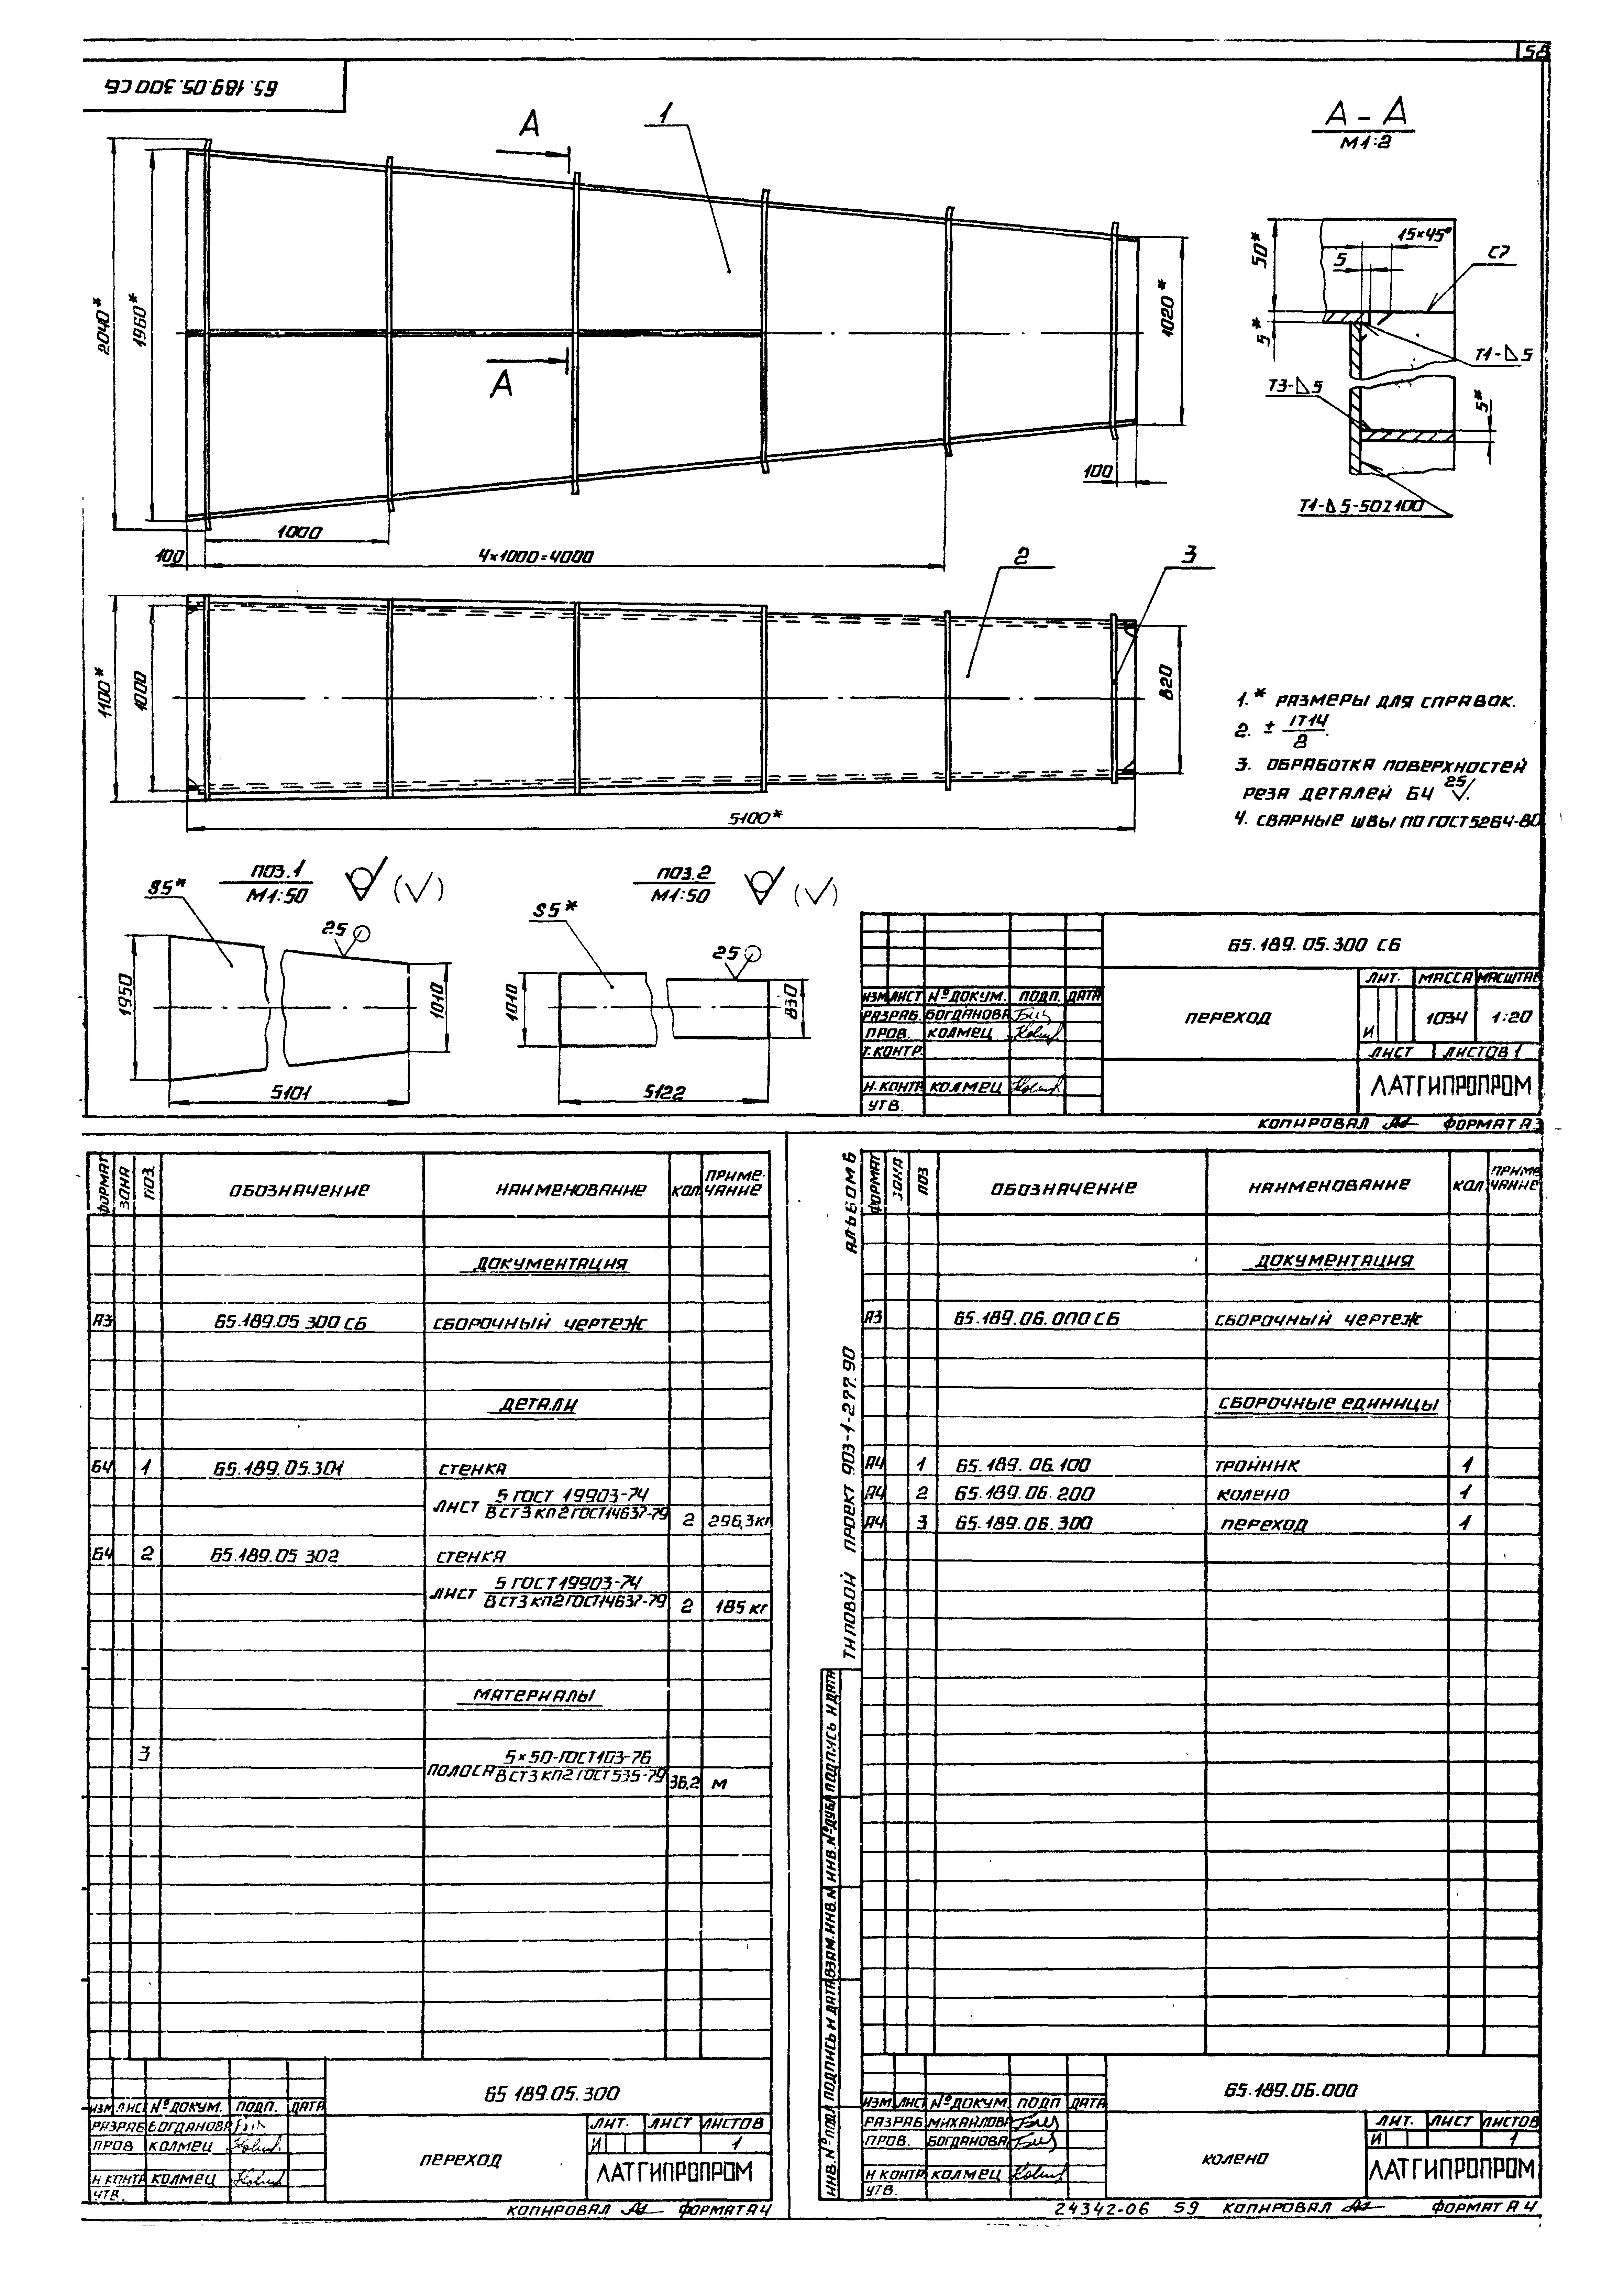 58
65.189.05.300 СБ
А
1
А – А
М1:2
2040*
1960*
1020*
50*
15×45°
5
С7
5*
Т1-◺5
Т3-◺5
5*
Т1-◺5-50Z100
А
100
1000
100
4×1000=4000
2
3
1100*
1000
820
5100*
1.* РАЗМЕРЫ ДЛЯ СПРАВОК.
2. ± IT14/2.
3. ОБРАБОТКА ПОВЕРХНОСТЕЙ
РЕЗА ДЕТАЛЕЙ БЧ 25√.
4. СВАРНЫЕ ШВЫ ПО ГОСТ5264-80
ПОЗ.1
М1:50
(√)
S5*
25
1950
1010
5101
ПОЗ.2
М1:50
(√)
S5*
25
1010
830
5122
65.189.05.300 СБ
ИЗМ. ЛИСТ № ДОКУМ. ПОДП. ДАТА
РАЗРАБ. БОГДАНОВА
ПРОВ. КОЛМЕЦ
Т.КОНТР.
Н.КОНТР КОЛМЕЦ
УТВ.
ПЕРЕХОД
ЛИТ. МАССА МАСШТАБ
И 1034 1:20
ЛИСТ ЛИСТОВ 1
ЛАТГИПРОПРОМ
КОПИРОВАЛ ФОРМАТ А3
ФОРМАТ ЗОНА ПОЗ. ОБОЗНАЧЕНИЕ НАИМЕНОВАНИЕ КОЛ. ПРИМЕ-
ЧАНИЕ
ДОКУМЕНТАЦИЯ
А3 65.189.05 300 СБ СБОРОЧНЫЙ ЧЕРТЕЖ
ДЕТАЛИ
БЧ 1 65.189.05.301 СТЕНКА
ЛИСТ 5 ГОСТ 19903-74
ВСТ3 КП2 ГОСТ14637-79 2 296,3 кг
БЧ 2 65.189.05 302 СТЕНКА
ЛИСТ 5 ГОСТ19903-74
ВСТ3 КП2 ГОСТ14637-79 2 185 кг
МАТЕРИАЛЫ
3 ПОЛОСА 5×50-ГОСТ103-76
ВСТ3 КП2 ГОСТ 535-79 36,2 М
65 189.05.300
ИЗМ. ЛИСТ № ДОКУМ. ПОДП. ДАТА
РАЗРАБ БОГДАНОВА
ПРОВ КОЛМЕЦ
Н КОНТР КОЛМЕЦ
УТВ.
ПЕРЕХОД
ЛИТ. ЛИСТ ЛИСТОВ
И 1
ЛАТГИПРОПРОМ
КОПИРОВАЛ ФОРМАТ А4
ТИПОВОЙ ПРОЕКТ 903-1-277.90 АЛЬБОМ 6
ИНВ. № ПОДЛ ПОДПИСЬ И ДАТА ВЗАМ. ИНВ. № ИНВ. № ДУБЛ ПОДПИСЬ И ДАТА
ФОРМАТ ЗОНА ПОЗ ОБОЗНАЧЕНИЕ НАИМЕНОВАНИЕ КОЛ ПРИМЕ
ЧАНИЕ
ДОКУМЕНТАЦИЯ
А3 65.189.06.000 СБ СБОРОЧНЫЙ ЧЕРТЕЖ
СБОРОЧНЫЕ ЕДИНИЦЫ
А4 1 65.189.06.100 ТРОЙНИК 1
А4 2 65.189.06.200 КОЛЕНО 1
А4 3 65.189.06.300 ПЕРЕХОД 1
65.189.06.000
ИЗМ. ЛИСТ № ДОКУМ. ПОДП ДАТА
РАЗРАБ МИХАЙЛОВА
ПРОВ. БОГДАНОВА
Н КОНТР КОЛМЕЦ
УТВ.
КОЛЕНО
ЛИТ. ЛИСТ ЛИСТОВ
И 1
ЛАТГИПРОПРОМ
24342-06 59 КОПИРОВАЛ ФОРМАТ А4